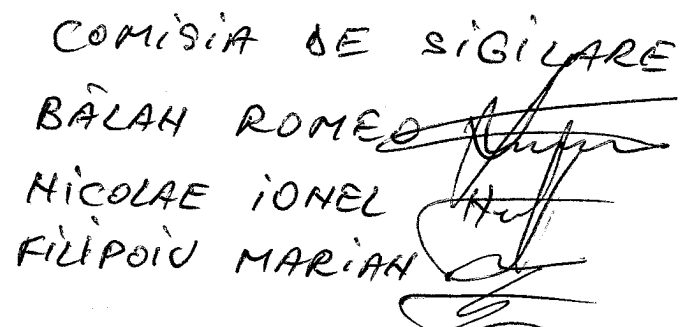 COMiSiA DE SiGiLARE
BĂLAN ROMEO
NiCOLAE iONEL
FiLiPOiU MARiAN